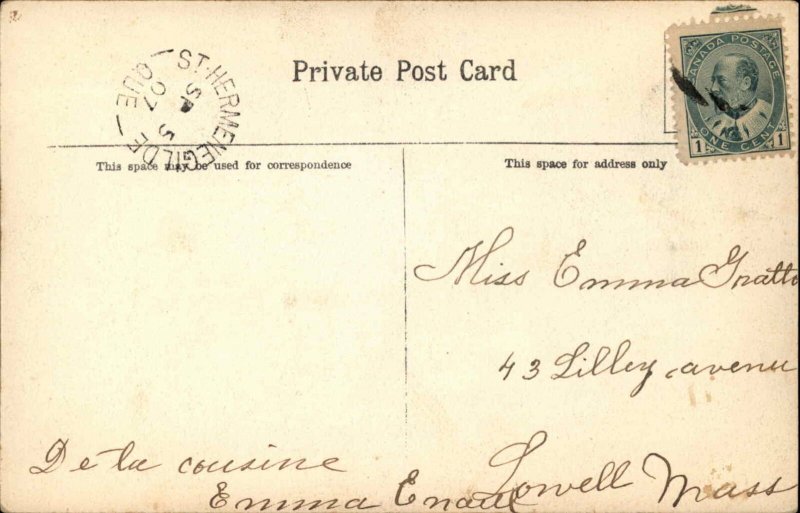 Private Post Card
ST-HERMENEGILDE
QUE
SP 5
07
CANADA POSTAGE
1 ONE CENT 1
This space may be used for correspondence
This space for address only
Miss Emma Gratto
43 Lilley avenu
Lowell Mass
De ta cousine
Emma